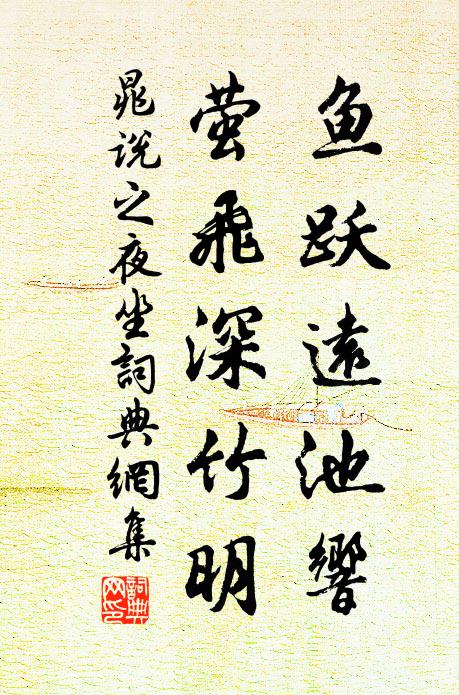 鱼跃遠池響
萤飛深竹明
晁说之夜坐詞典網集
詞典网印